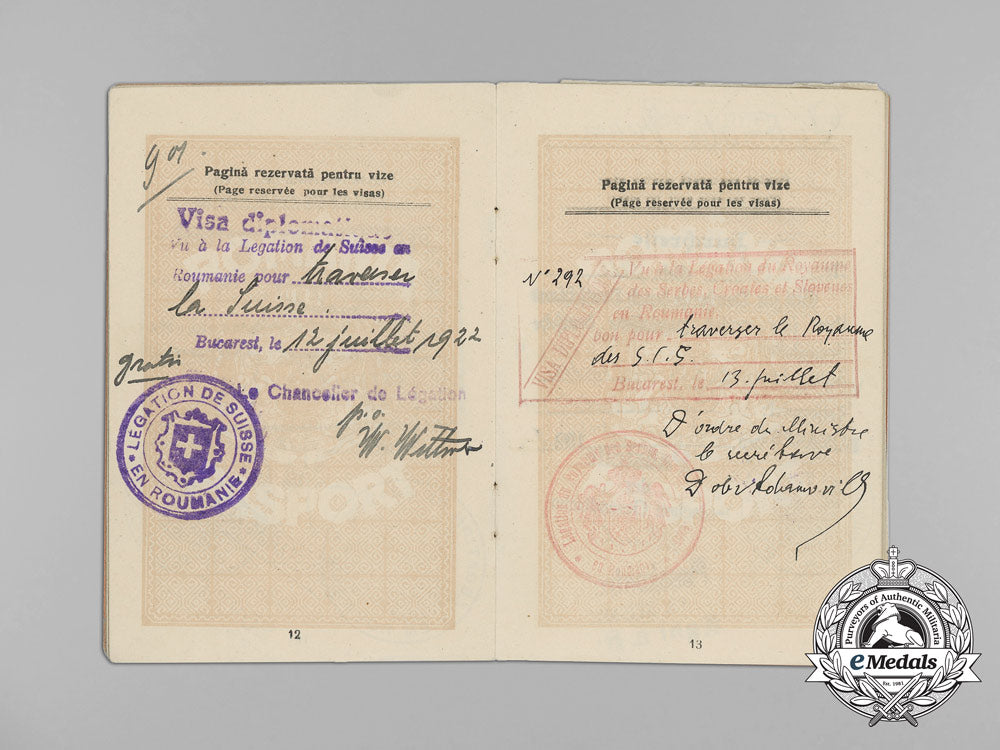 901.
Pagină rezervată pentru vize
(Page reservée pour les visas)
Visa diplomatique
Vu à la Légation de Suisse en
Roumanie pour traverser
la Suisse.
Bucarest, le 12 juillet 1922
gratis
Le Chancelier de Légation
p.o.
W.
LÉGATION DE SUISSE
EN ROUMANIE
SPORT
12
Pagină rezervată pentru vize
(Page reservée pour les visas)
N° 292
VISA DIPLOMATIQUE
Vu à la Légation du Royaume
des Serbes, Croates et Slovenes
en Roumanie,
bon pour traverser le Royaume
des S.C.S.
Bucarest, le 13. juillet
D'ordre du Ministre
le secrétaire
SPORT
13
Purveyors of Authentic Militaria
eMedals
Est. 1981